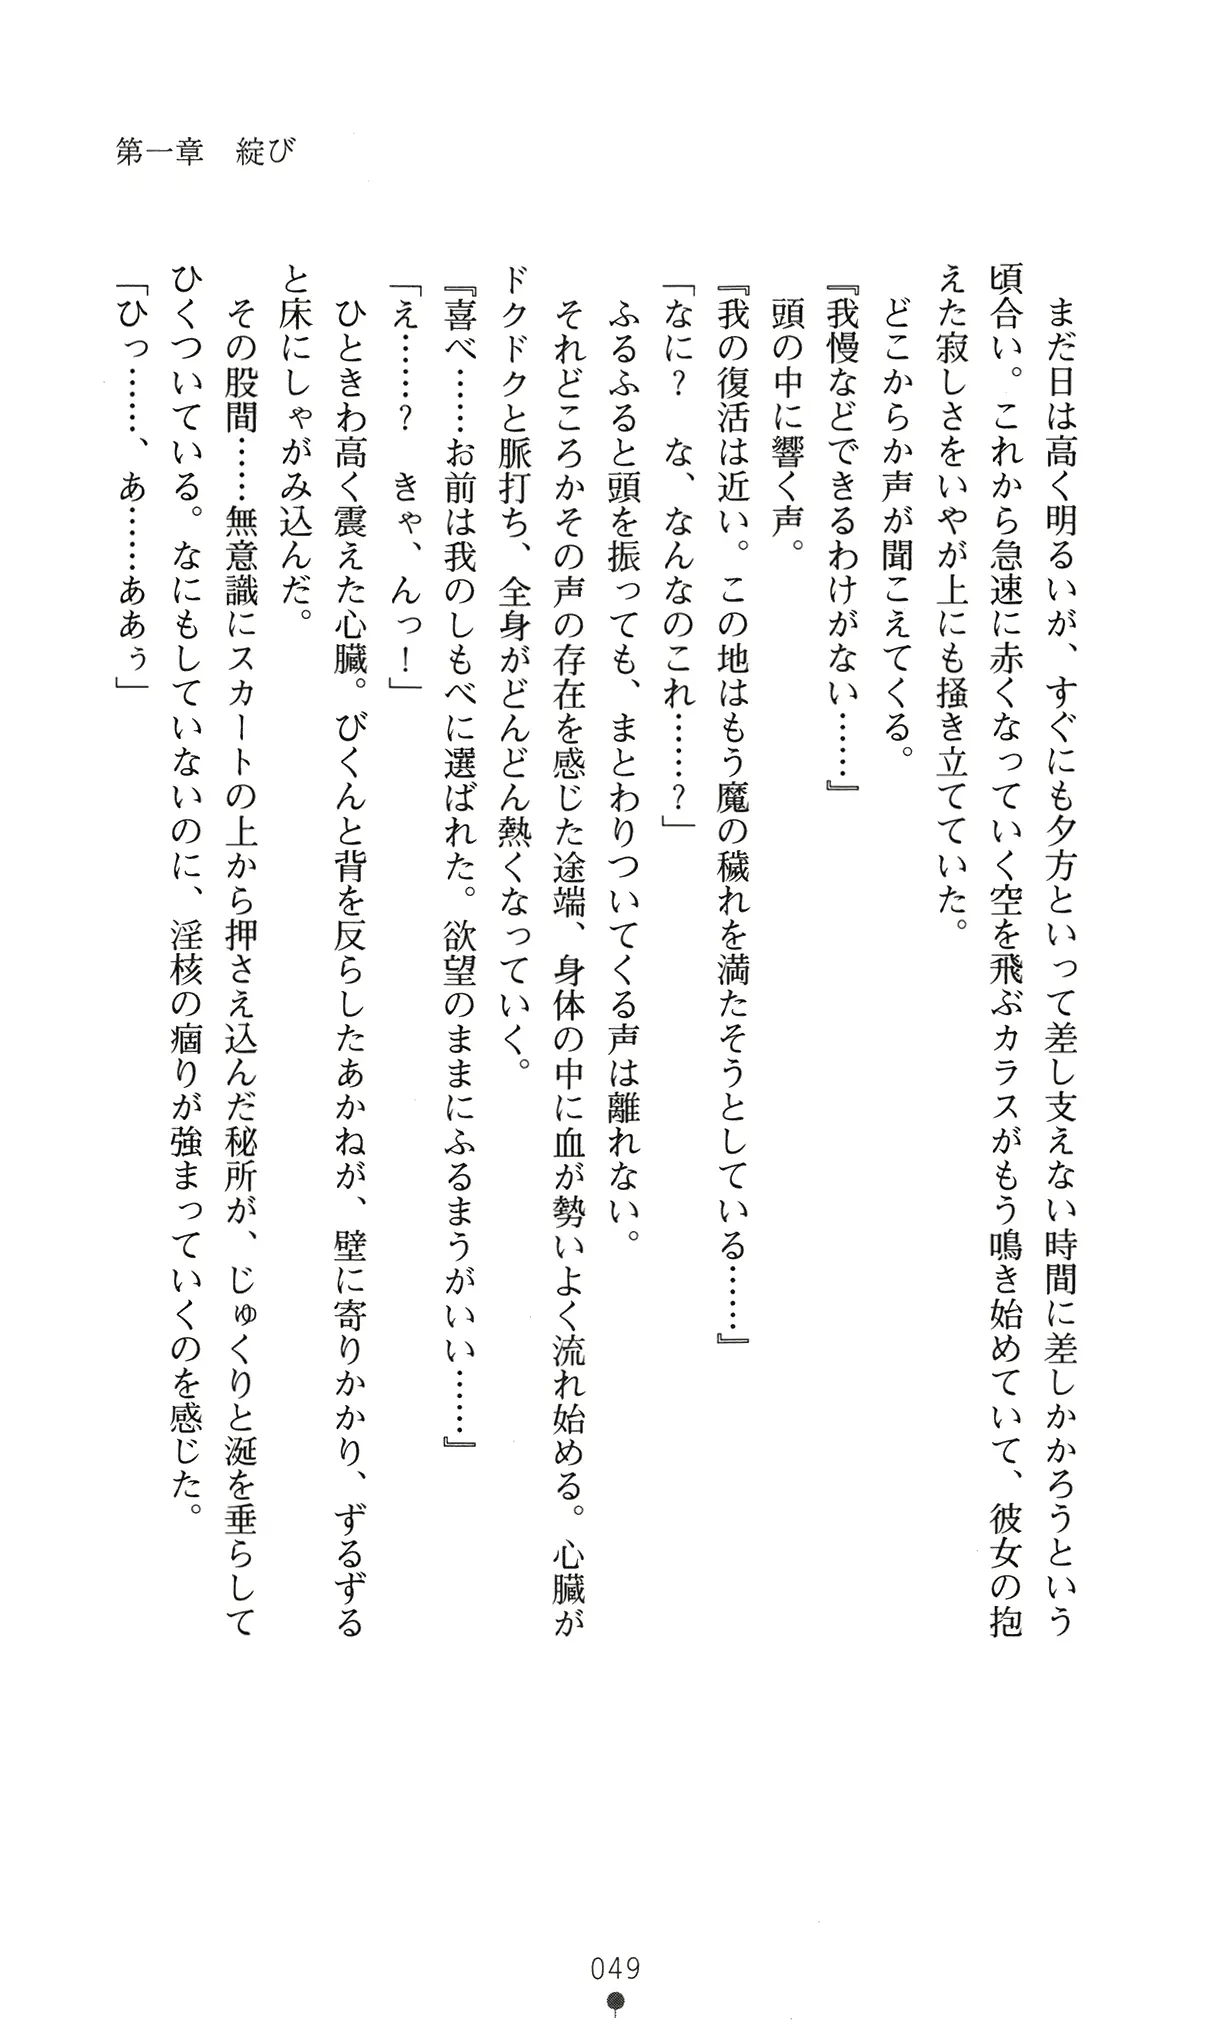 第一章　綻び
　まだ日は高く明るいが、すぐにも夕方といって差し支えない時間に差しかかろうという
頃合い。これから急速に赤くなっていく空を飛ぶカラスがもう鳴き始めていて、彼女の抱
えた寂しさをいやが上にも掻き立てていた。
　どこからか声が聞こえてくる。
『我慢などできるわけがない……』
　頭の中に響く声。
『我の復活は近い。この地はもう魔の穢れを満たそうとしている……』
「なに？　な、なんなのこれ……？」
　ふるふると頭を振っても、まとわりついてくる声は離れない。
　それどころかその声の存在を感じた途端、身体の中に血が勢いよく流れ始める。心臓が
ドクドクと脈打ち、全身がどんどん熱くなっていく。
『喜べ……お前は我のしもべに選ばれた。欲望のままにふるまうがいい……』
「え……？　きゃ、んっ！」
　ひときわ高く震えた心臓。びくんと背を反らしたあかねが、壁に寄りかかり、ずるずる
と床にしゃがみ込んだ。
　その股間……無意識にスカートの上から押さえ込んだ秘所が、じゅくりと涎を垂らして
ひくついている。なにもしていないのに、淫核の痼りが強まっていくのを感じた。
「ひっ……、あ……ああぅ」
049